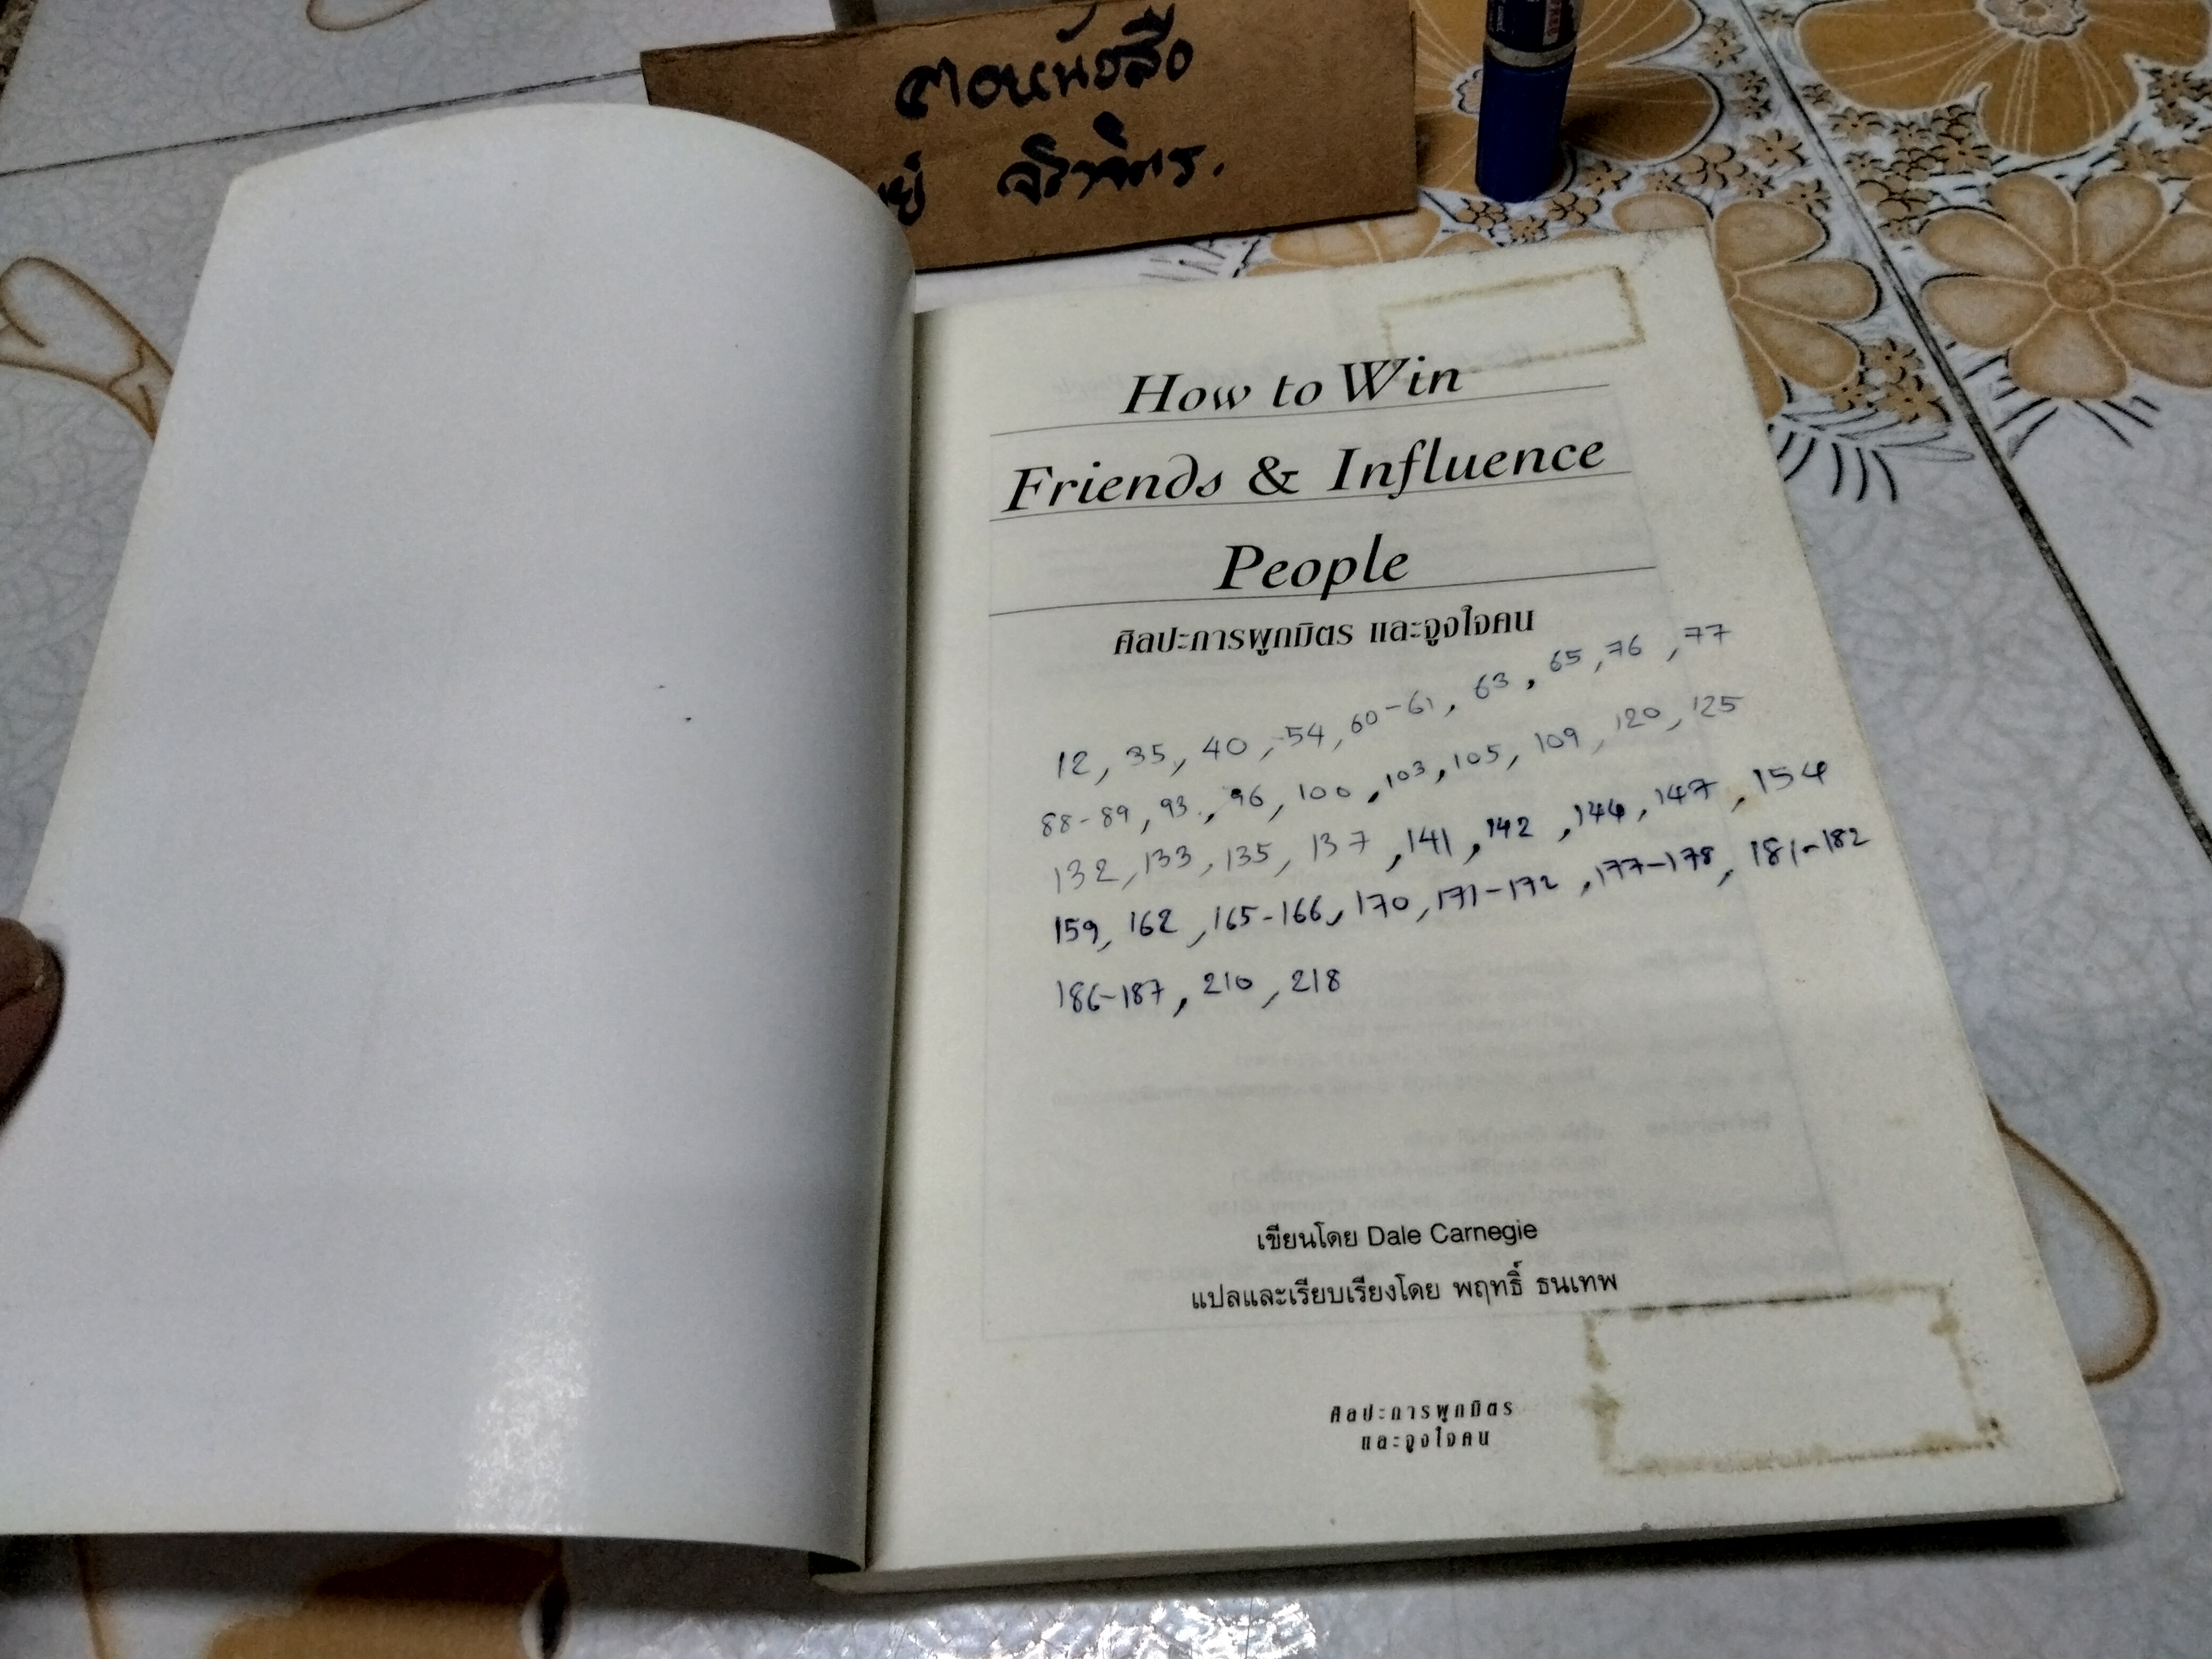 How to Win
Friends & Influence
People
ศิลปะการผูกมิตร และจูงใจคน
12, 35, 40, 54, 60-61, 63, 65, 76, 77
88-89, 93, 96, 100, 103, 105, 109, 120, 125
132, 133, 135, 137, 141, 142, 144, 147, 154
159, 162, 165-166, 170, 171-172, 177-178, 181-182
186-187, 210, 218
เขียนโดย Dale Carnegie
แปลและเรียบเรียงโดย พฤทธิ์ ธนเทพ
ศิลปะการผูกมิตร
และจูงใจคน